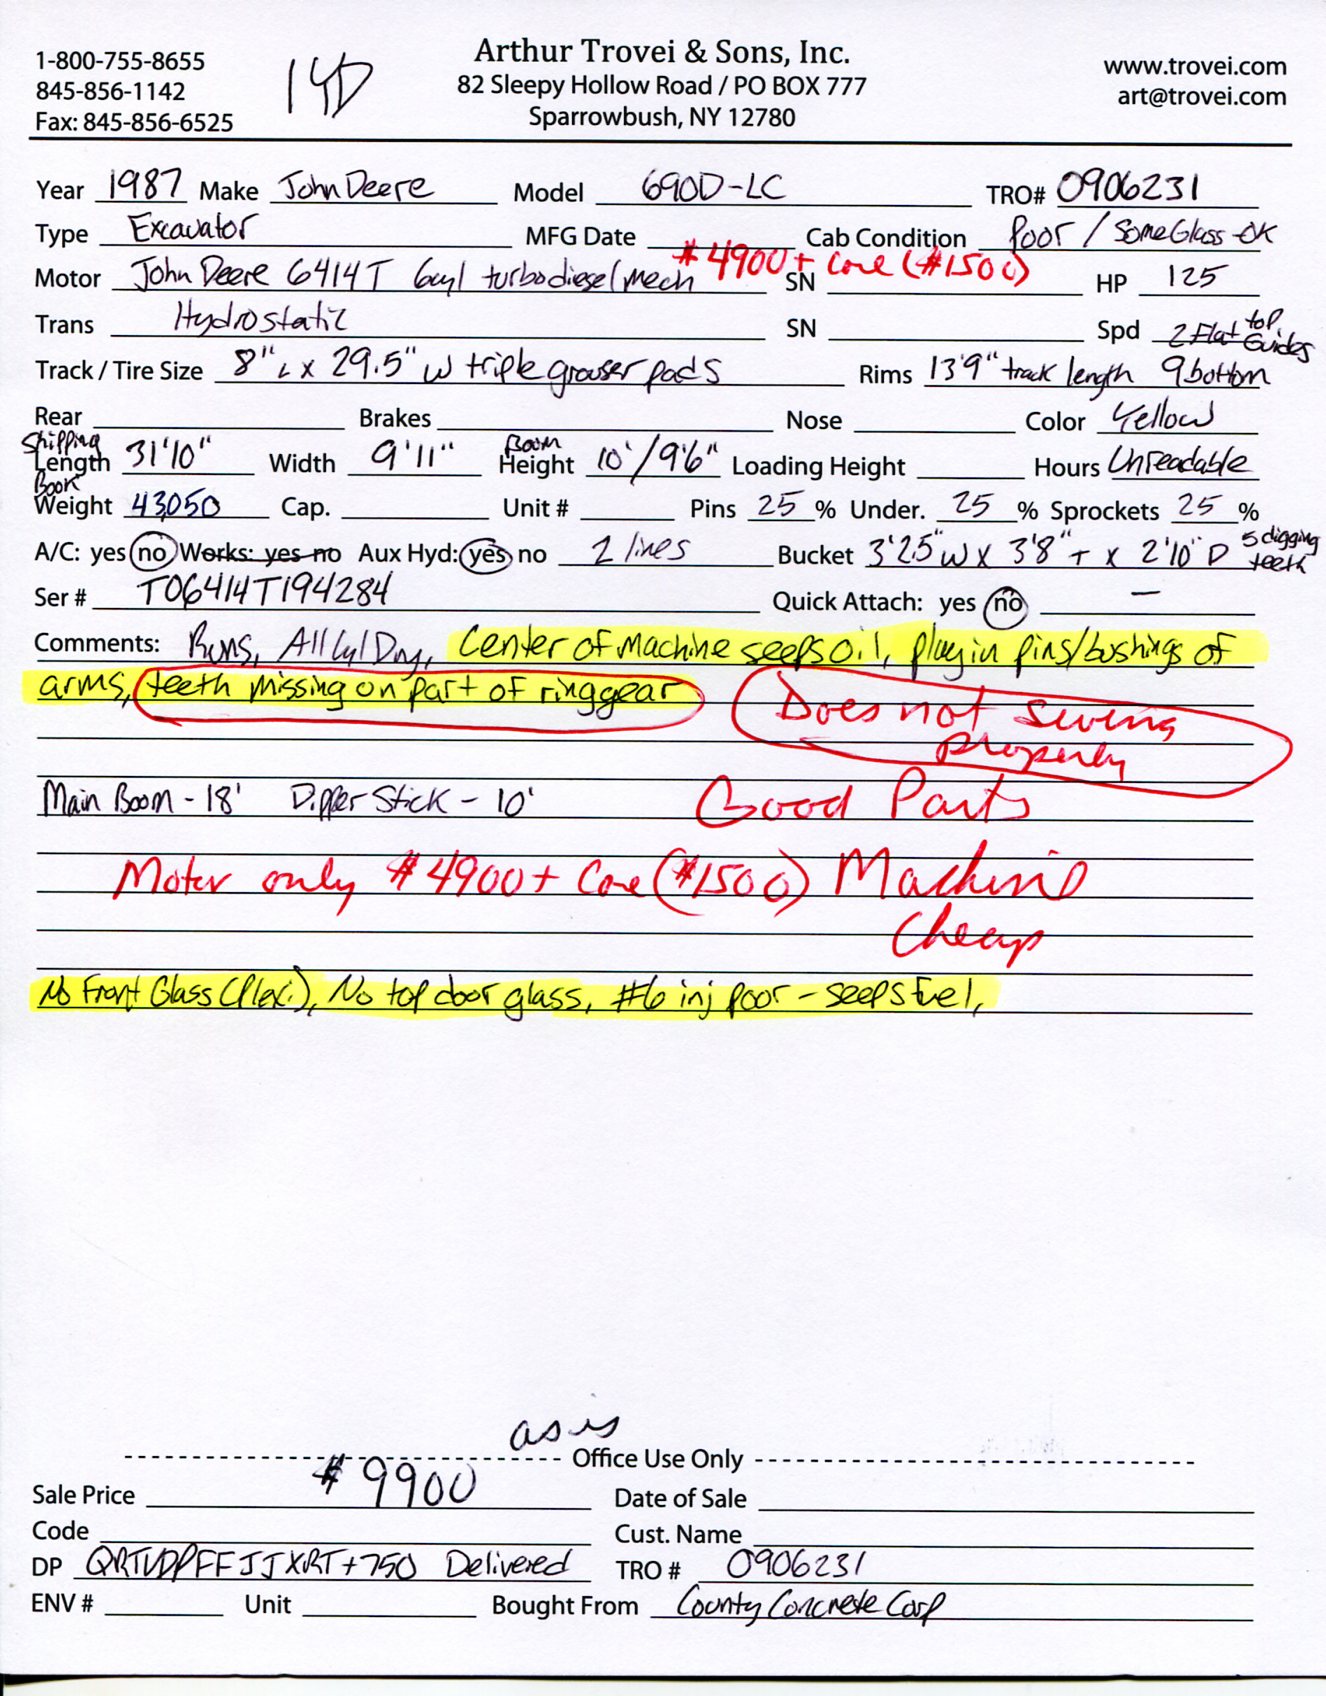 1-800-755-8655
845-856-1142
Fax: 845-856-6525
14D
Arthur Trovei & Sons, Inc.
82 Sleepy Hollow Road / PO BOX 777
Sparrowbush, NY 12780
www.trovei.com
art@trovei.com
Year 1987 Make John Deere Model 690D-LC TRO# 0906231
Type Excavator MFG Date Cab Condition Poor / Some Glass OK
$4900 + Core ($1500)
Motor John Deere 6414T 6cyl turbo diesel mech SN HP 125
Trans Hydrostatic SN Spd 2 Flat top Guides
Track / Tire Size 8" L x 29.5" W triple grouser pads Rims 13'9" track length 9 bottom
Rear Brakes Nose Color Yellow
Shipping Length 31'10" Width 9'11" Boom Height 10' / 9'6" Loading Height Hours Unreadable
Book Weight 43,050 Cap. Unit # Pins 25 % Under. 25 % Sprockets 25 %
A/C: yes no Works: yes no Aux Hyd: yes no 2 lines Bucket 3'2.5" W x 3'8" T x 2'10" D 5 digging teeth
Ser # T06414T194284 Quick Attach: yes no —
Comments: Runs, All Cyl Dry, Center of machine seeps oil, play in pins/bushings of
arms, teeth missing on part of ring gear
Does not swing
properly
Main Boom - 18' Dipper Stick - 10' Good Parts
Motor only $4900 + Core ($1500) Machine
Cheap
No Front Glass (Plexi), No top door glass, #6 inj poor - seeps fuel,
as is
Office Use Only
Sale Price $9900 Date of Sale
Code Cust. Name
DP QRTVDPFFJJXRT+750 Delivered TRO # 0906231
ENV # Unit Bought From County Concrete Corp